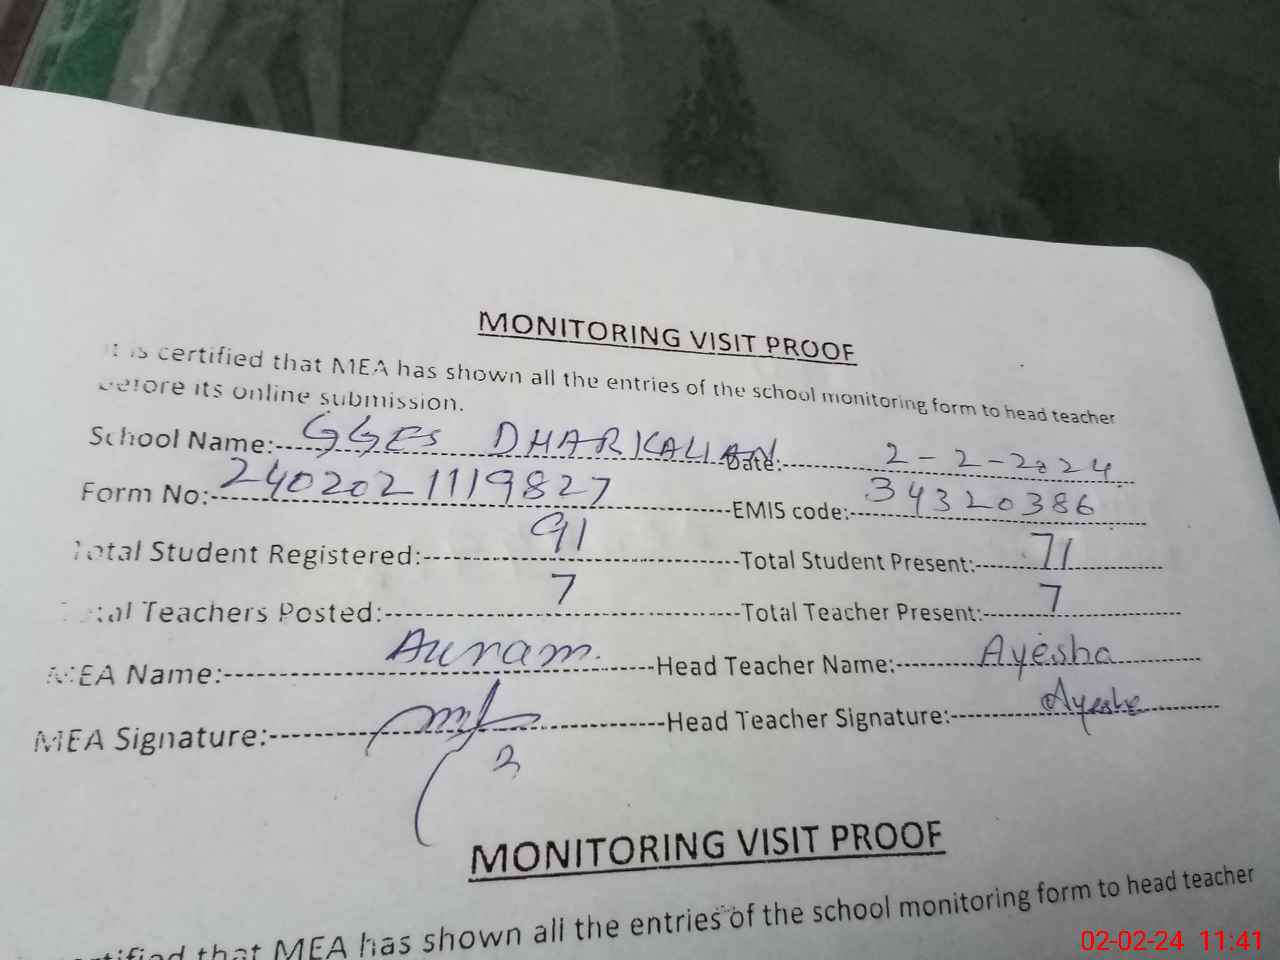 MONITORING VISIT PROOF
It is certified that MEA has shown all the entries of the school monitoring form to head teacher
before its online submission.
School Name: GGES DHARKALIAN Date: 2-2-2024
Form No: 2402021119827 EMIS code: 34320386
Total Student Registered: 91 Total Student Present: 71
Total Teachers Posted: 7 Total Teacher Present: 7
MEA Name: Head Teacher Name: Ayesha
MEA Signature: Head Teacher Signature: Ayesha
MONITORING VISIT PROOF
certified that MEA has shown all the entries of the school monitoring form to head teacher
02-02-24 11:41